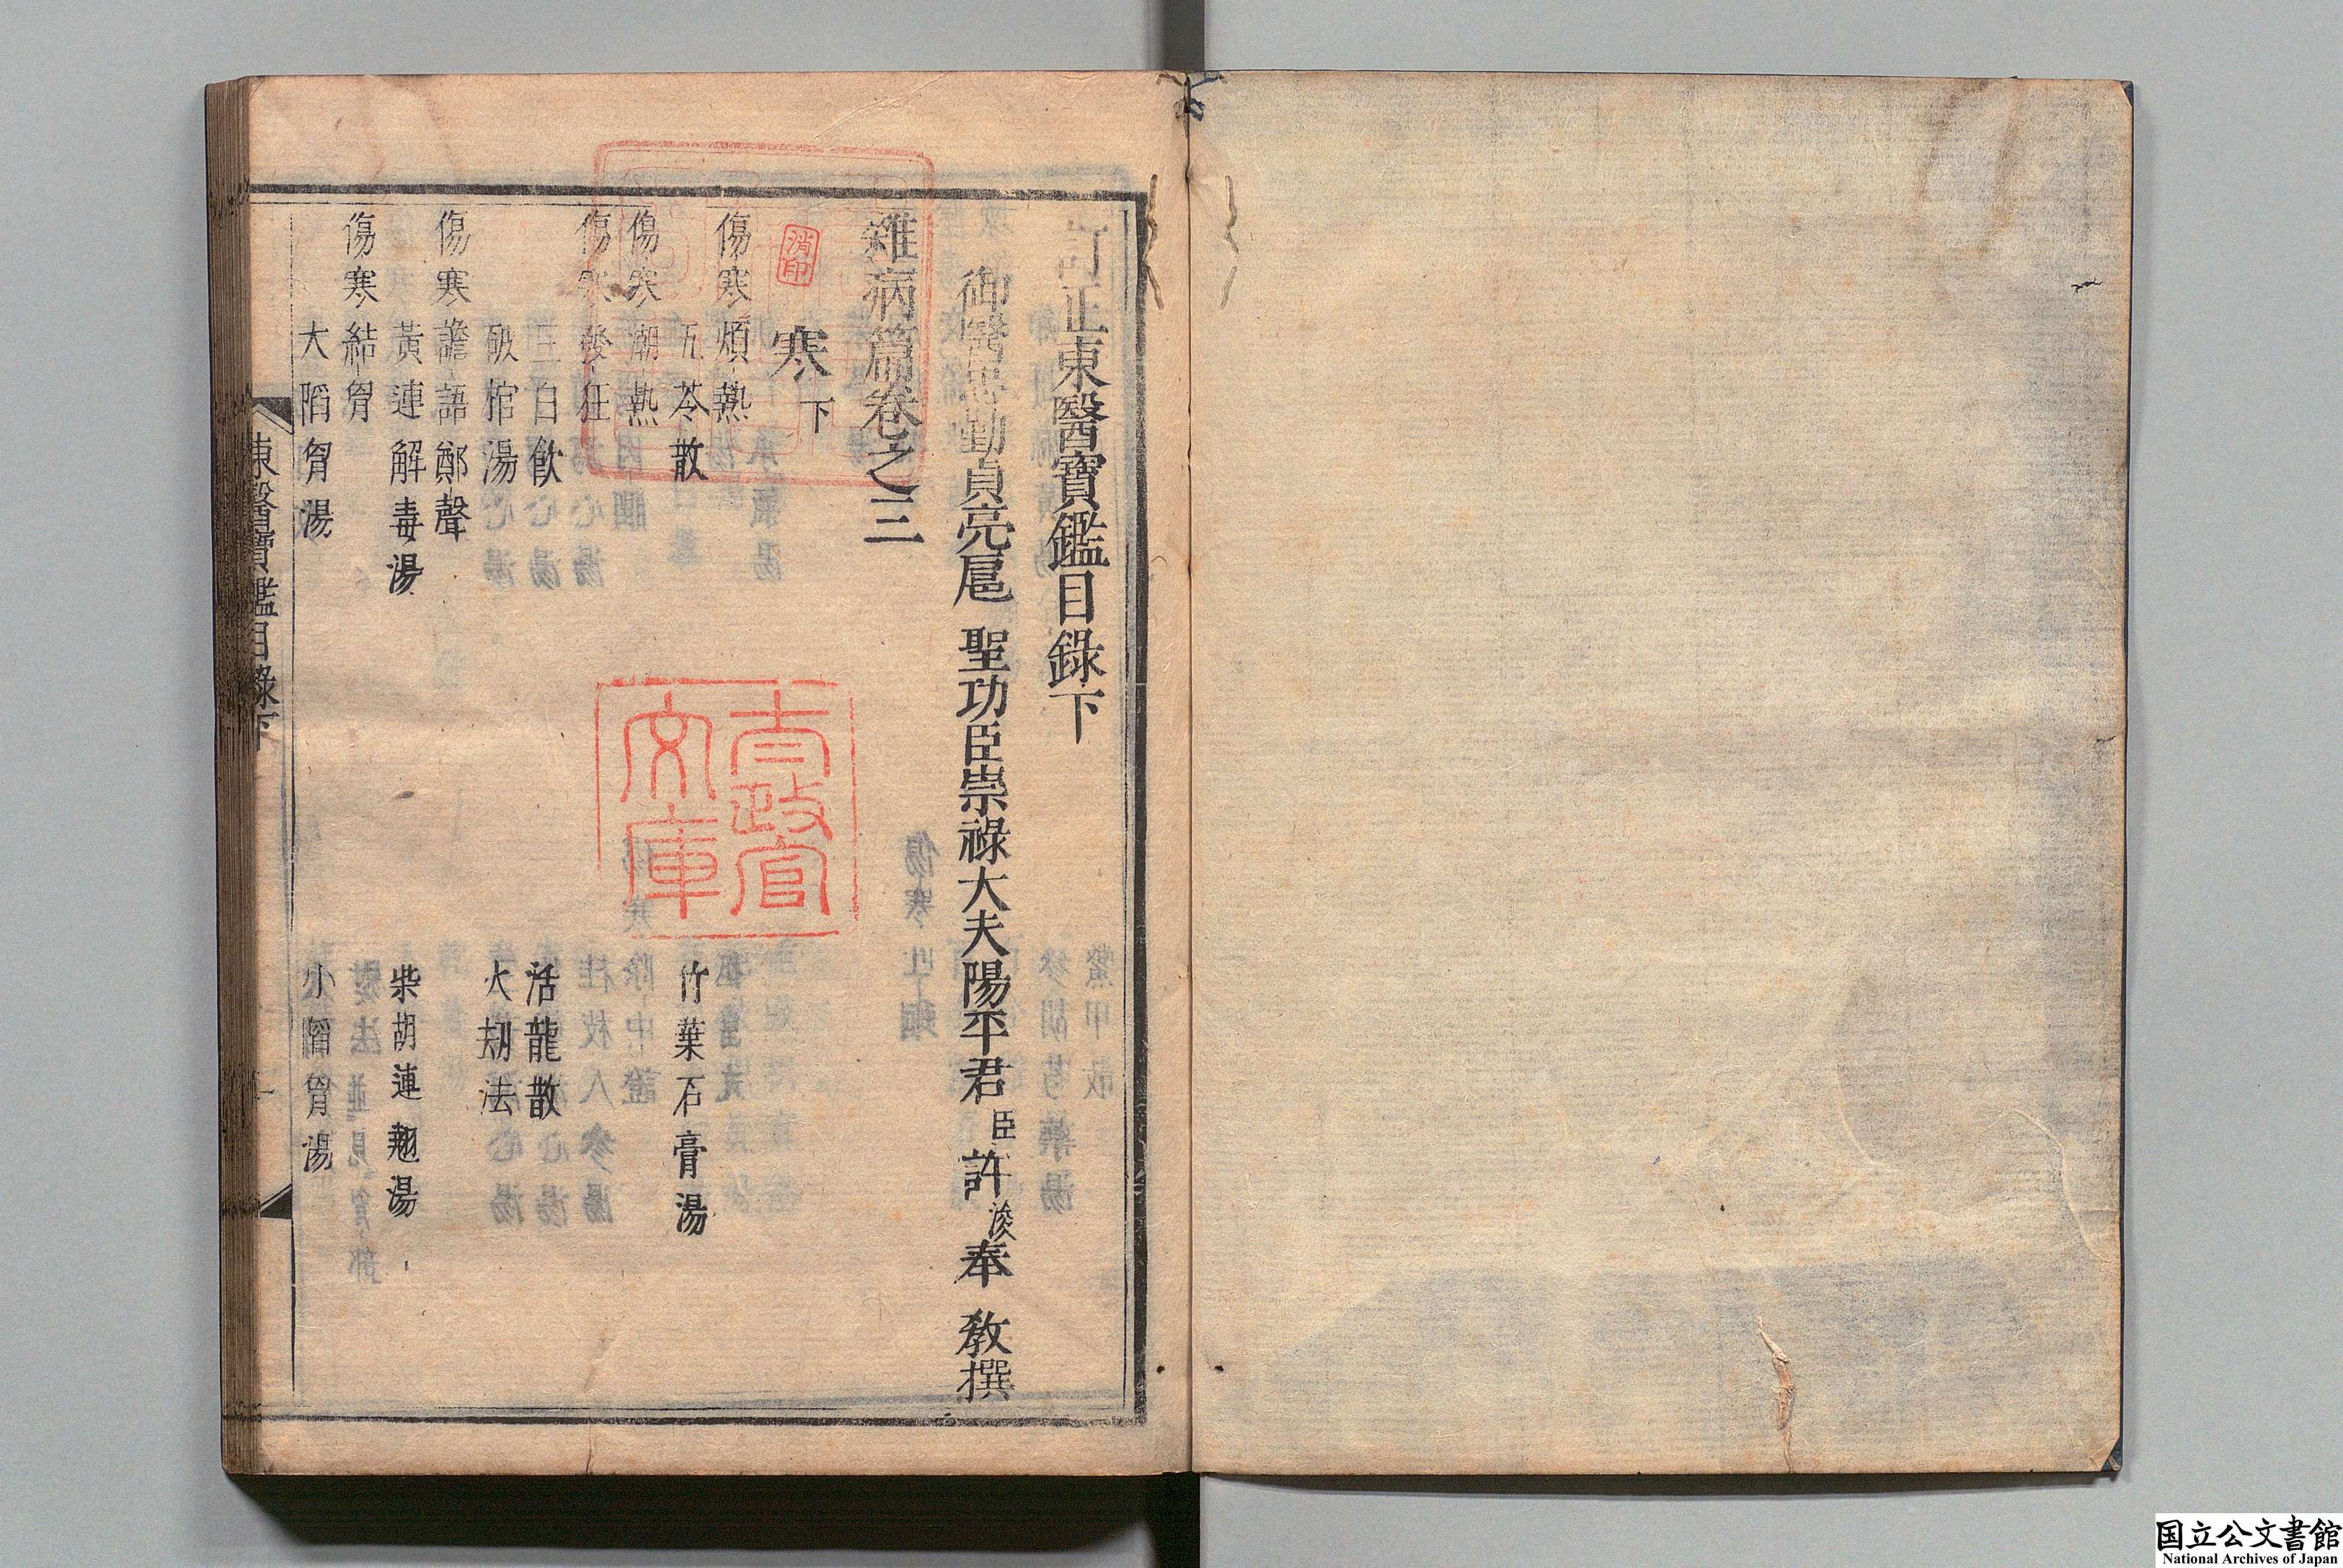 訂正東醫寶鑑目錄下
御醫忠勤貞亮扈 聖功臣崇祿大夫陽平君臣許浚奉 敎撰
雜病篇卷之三
消印
寒下
傷寒煩熱
五苓散 竹葉石膏湯
傷寒潮熱
傷寒發狂
三白飮 活龍散
破棺湯 火刼法
傷寒譫語鄭聲
黃連解毒湯 柴胡連翹湯
傷寒結胷
大陷胷湯 小陷胷湯
東醫寶鑑目錄下 一
太政官文庫
国立公文書館
National Archives of Japan